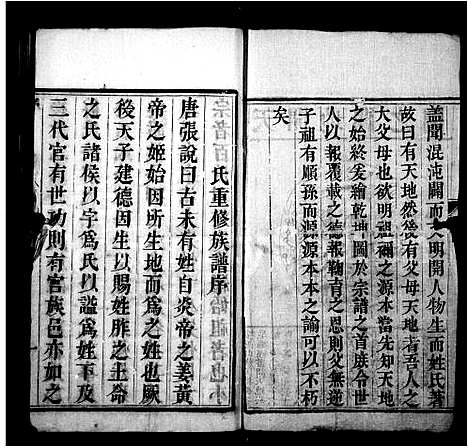 蓋聞混沌闢而文明開人物生而姓氏著
故曰有天地然後有父母天地者吾人之
大父母也欲明祖禰之源本當先知天地
之始終爰繪乾坤圖於宗譜之首張令世
人以報覆載之德報鞠育之恩則父無逆
子祖有順孫而源源本本之諭可以不朽
矣
氏重修族譜序
唐張說曰古未有姓自炎帝之姜黃
帝之姬始因所生地而為之也厥
後天子建德因生以賜姓胙之土命
之氏諸侯以字為氏以諡為姓下及
三代官有世功則有官族邑亦如之